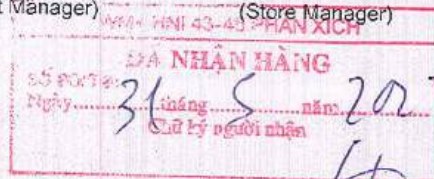 t Manager) (Store Manager)
WM+ HNI 43-45 PHAN XICH
ĐÃ NHẬN HÀNG
Ngày 31 tháng 5 năm 202
Chữ ký người nhận